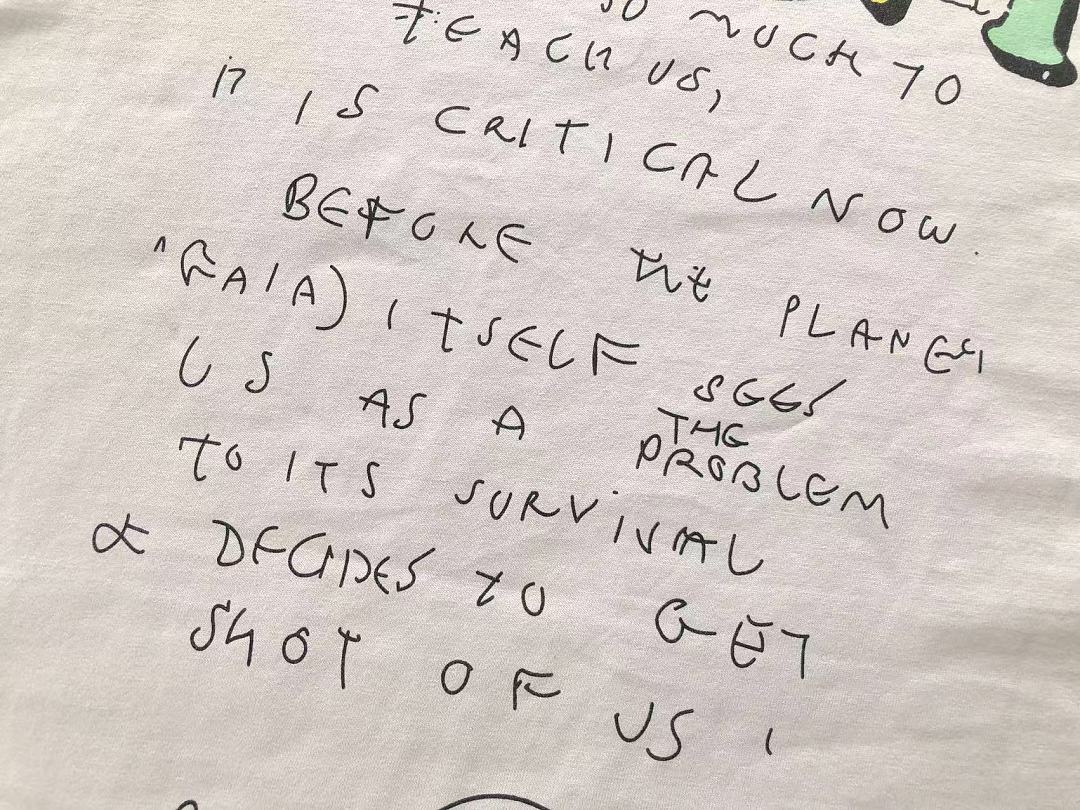 SO MUCH TO
TEACH US,
IT IS CRITICAL NOW
BEFORE THE PLANET
(GAIA) ITSELF SEES
US AS A THE PROBLEM
TO ITS SURVIVAL
& DECIDES TO GET
SHOT OF US!